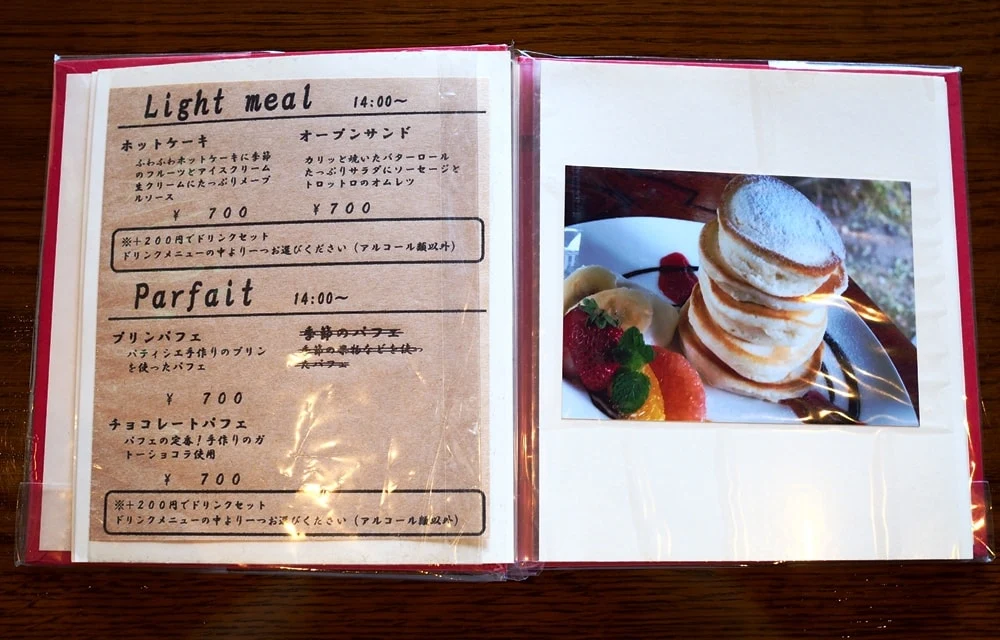 Light meal 14:00～
ホットケーキ
ふわふわホットケーキに季節
のフルーツとアイスクリーム
生クリームにたっぷりメープ
ルソース
￥ 700
オープンサンド
カリッと焼いたバターロール
たっぷりサラダにソーセージと
トロットロのオムレツ
￥700
※＋200円でドリンクセット
ドリンクメニューの中より一つお選びください（アルコール類以外）
Parfait 14:00～
プリンパフェ
パティシエ手作りのプリン
を使ったパフェ
￥ 700
季節のパフェ
季節の果物などを使っ
たパフェ
チョコレートパフェ
パフェの定番！手作りのガ
トーショコラ使用
￥ 700
※＋200円でドリンクセット
ドリンクメニューの中より一つお選びください（アルコール類以外）